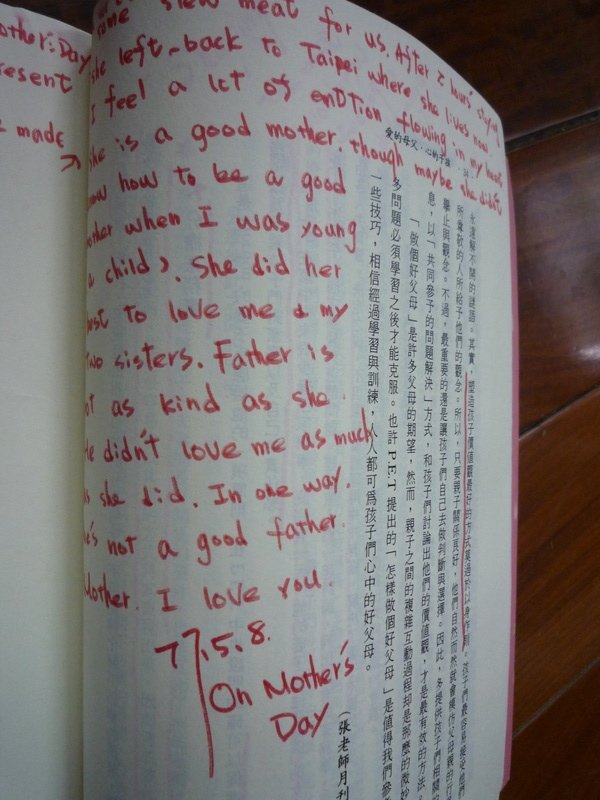 other's Day
resent
made
some stew meat for us. After 2 hours' staying
she left back to Taipei where she lives now.
I feel a lot of enDtion flowing in my heart
she is a good mother. though maybe she didn't
know how to be a good
other when I was young
a child). She did her
st to love me & my
two sisters. Father is
ot as kind as she.
He didn't love me as much
as she did. In one way.
he's not a good father.
Mother. I love you.
77.5.8.
On Mother's
Day
愛的母父‧心的子孩
34
永遠解不開的謎語。其實,塑造孩子價值觀最好的方式莫過於以身作則。孩子們最容易接受他們
所尊敬的人所給予他們的觀念。所以,只要親子關係良好,他們自然而然就會模仿父母親的行
舉止與觀念。不過,最重要的還是讓孩子們自己去做判斷與選擇。因此,多提供孩子們相關的
息,以「共同參予的問題解決」方式,和孩子們討論出他們的價值觀,才是最有效的方法。
「做個好父母」是許多父母的期望,然而,親子之間的複雜互動過程却是那麼的微妙
多問題必須學習之後才能克服。也許P.E.T提出的「怎樣做個好父母」是值得我們參
一些技巧,相信經過學習與訓練,人人都可爲孩子們心中的好父母。
(張老師月刊